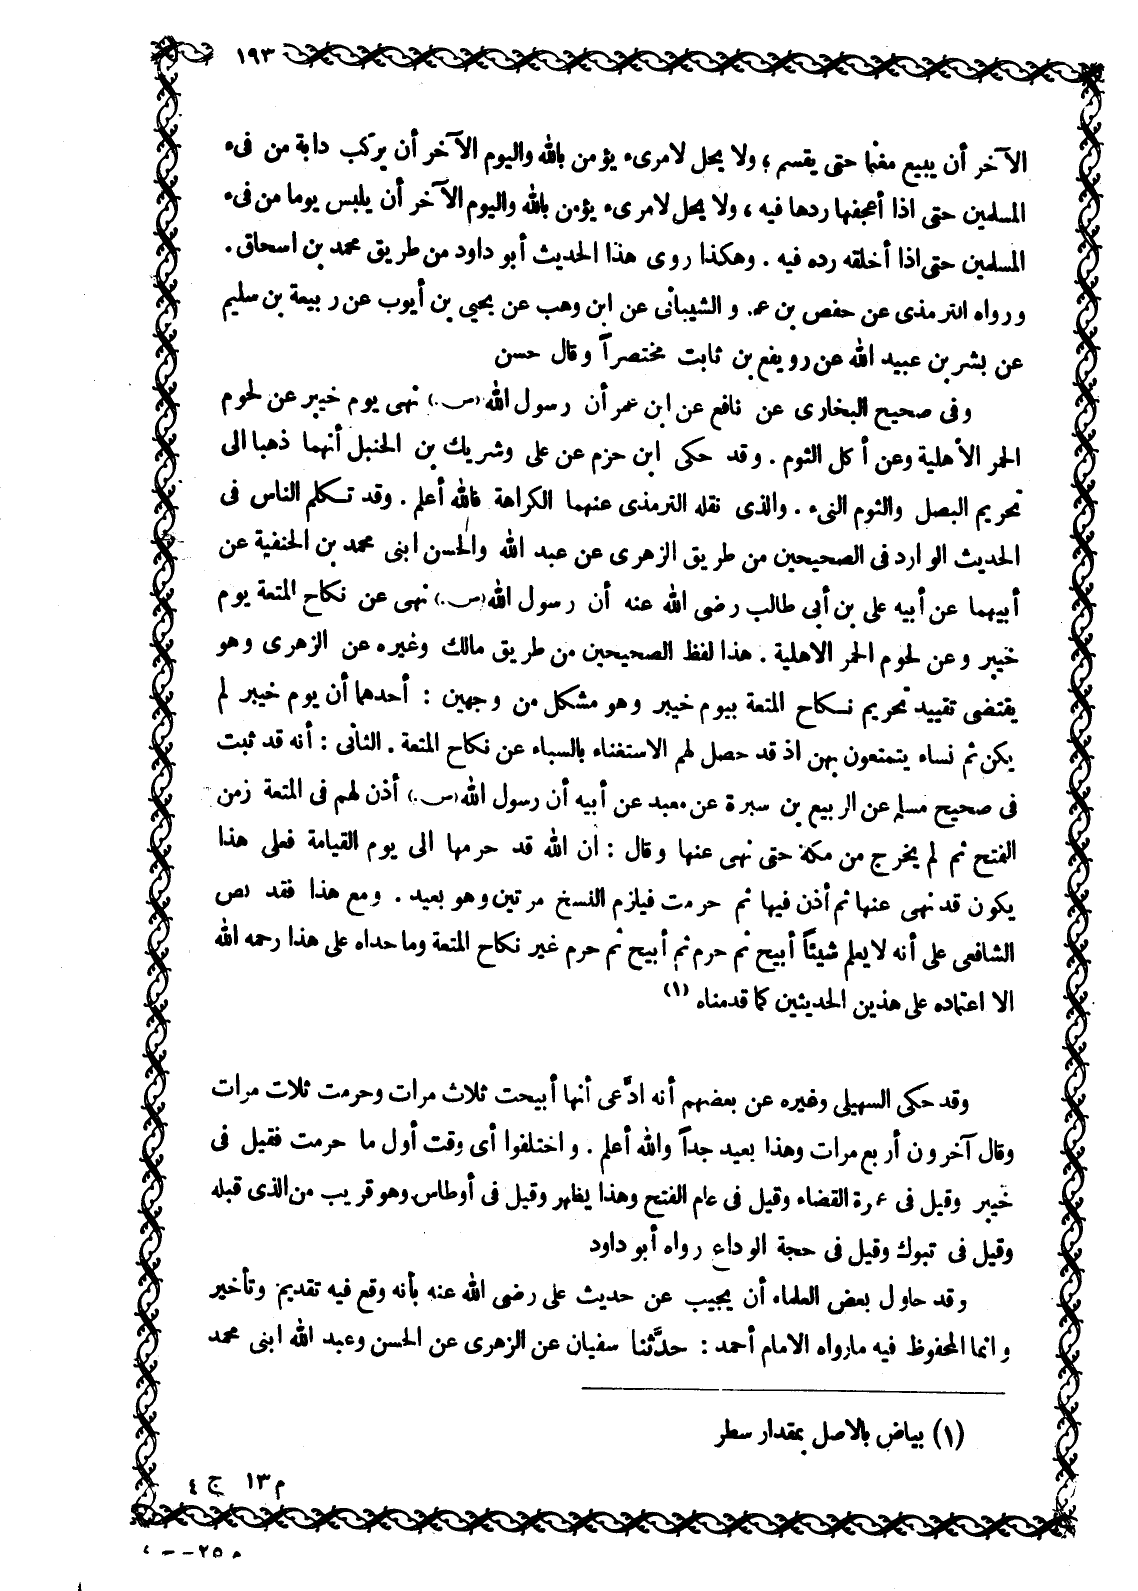 ١٩٣
الآخر أن يبيع مغنما حتى يقسم ، ولا يحل لامرىء يؤمن بالله واليوم الآخر أن يركب دابة من فىء
المسلمين حتى اذا أعجفها ردها فيه ، ولا يحل لامرىء يؤمن بالله واليوم الآخر أن يلبس يوما من فىء
المسلمين حتى اذا أخلقه رده فيه . وهكذا روى هذا الحديث أبو داود من طريق محمد بن اسحاق .
ورواه الترمذى عن حفص بن عمر و الشيبانى عن ابن وهب عن يحيى بن أيوب عن ربيعة بن سليم
عن بشر بن عبيد الله عن رويفع بن ثابت مختصراً وقال حسن
وفى صحيح البخارى عن نافع عن ابن عمر أن رسول الله (ص.) نهى يوم خيبر عن لحوم
الحمر الأهلية وعن أكل الثوم . وقد حكى ابن حزم عن على وشريك بن الحنبل أنهما ذهبا الى
تحريم البصل والثوم النىء . والذى نقله الترمذى عنهما الكراهة فالله أعلم . وقد تكلم الناس فى
الحديث الوارد فى الصحيحين من طريق الزهرى عن عبد الله والحسن ابنى محمد بن الحنفية عن
أبيهما عن أبيه على بن أبى طالب رضى الله عنه أن رسول الله (ص.) نهى عن نكاح المتعة يوم
خيبر وعن لحوم الحمر الاهلية . هذا لفظ الصحيحين من طريق مالك وغيره عن الزهرى وهو
يقتضى تقييد تحريم نكاح المتعة بيوم خيبر وهو مشكل من وجهين : أحدهما أن يوم خيبر لم
يكن ثم نساء يتمتعون بهن اذ قد حصل لهم الاستغناء بالسباء عن نكاح المتعة . الثانى : أنه قد ثبت
فى صحيح مسلم عن الربيع بن سبرة عن معبد عن أبيه أن رسول الله (ص.) أذن لهم فى المتعة زمن
الفتح ثم لم يخرج من مكة حتى نهى عنها وقال : ان الله قد حرمها الى يوم القيامة فعلى هذا
يكون قد نهى عنها ثم أذن فيها ثم حرمت فيلزم النسخ مرتين وهو بعيد . ومع هذا فقد نص
الشافعى على أنه لا يعلم شيئاً أبيح ثم حرم ثم أبيح ثم حرم غير نكاح المتعة وما حداه على هذا رحمه الله
الا اعتماده على هذين الحديثين كما قدمناه (١)
وقد حكى السهيلى وغيره عن بعضهم أنه ادَّعى أنها أبيحت ثلاث مرات وحرمت ثلاث مرات
وقال آخرون أربع مرات وهذا بعيد جداً والله أعلم . واختلفوا أى وقت أول ما حرمت فقيل فى
خيبر وقيل فى عمرة القضاء وقيل فى عام الفتح وهذا يظهر وقيل فى أوطاس وهو قريب من الذى قبله
وقيل فى تبوك وقيل فى حجة الوداع رواه أبو داود
وقد حاول بعض العلماء أن يجيب عن حديث على رضى الله عنه بأنه وقع فيه تقديم وتأخير
وانما المحفوظ فيه مارواه الامام أحمد : حدَّثنا سفيان عن الزهرى عن الحسن وعبد الله ابنى محمد
(١) بياض بالاصل بمقدار سطر
م ١٣ ج ٤